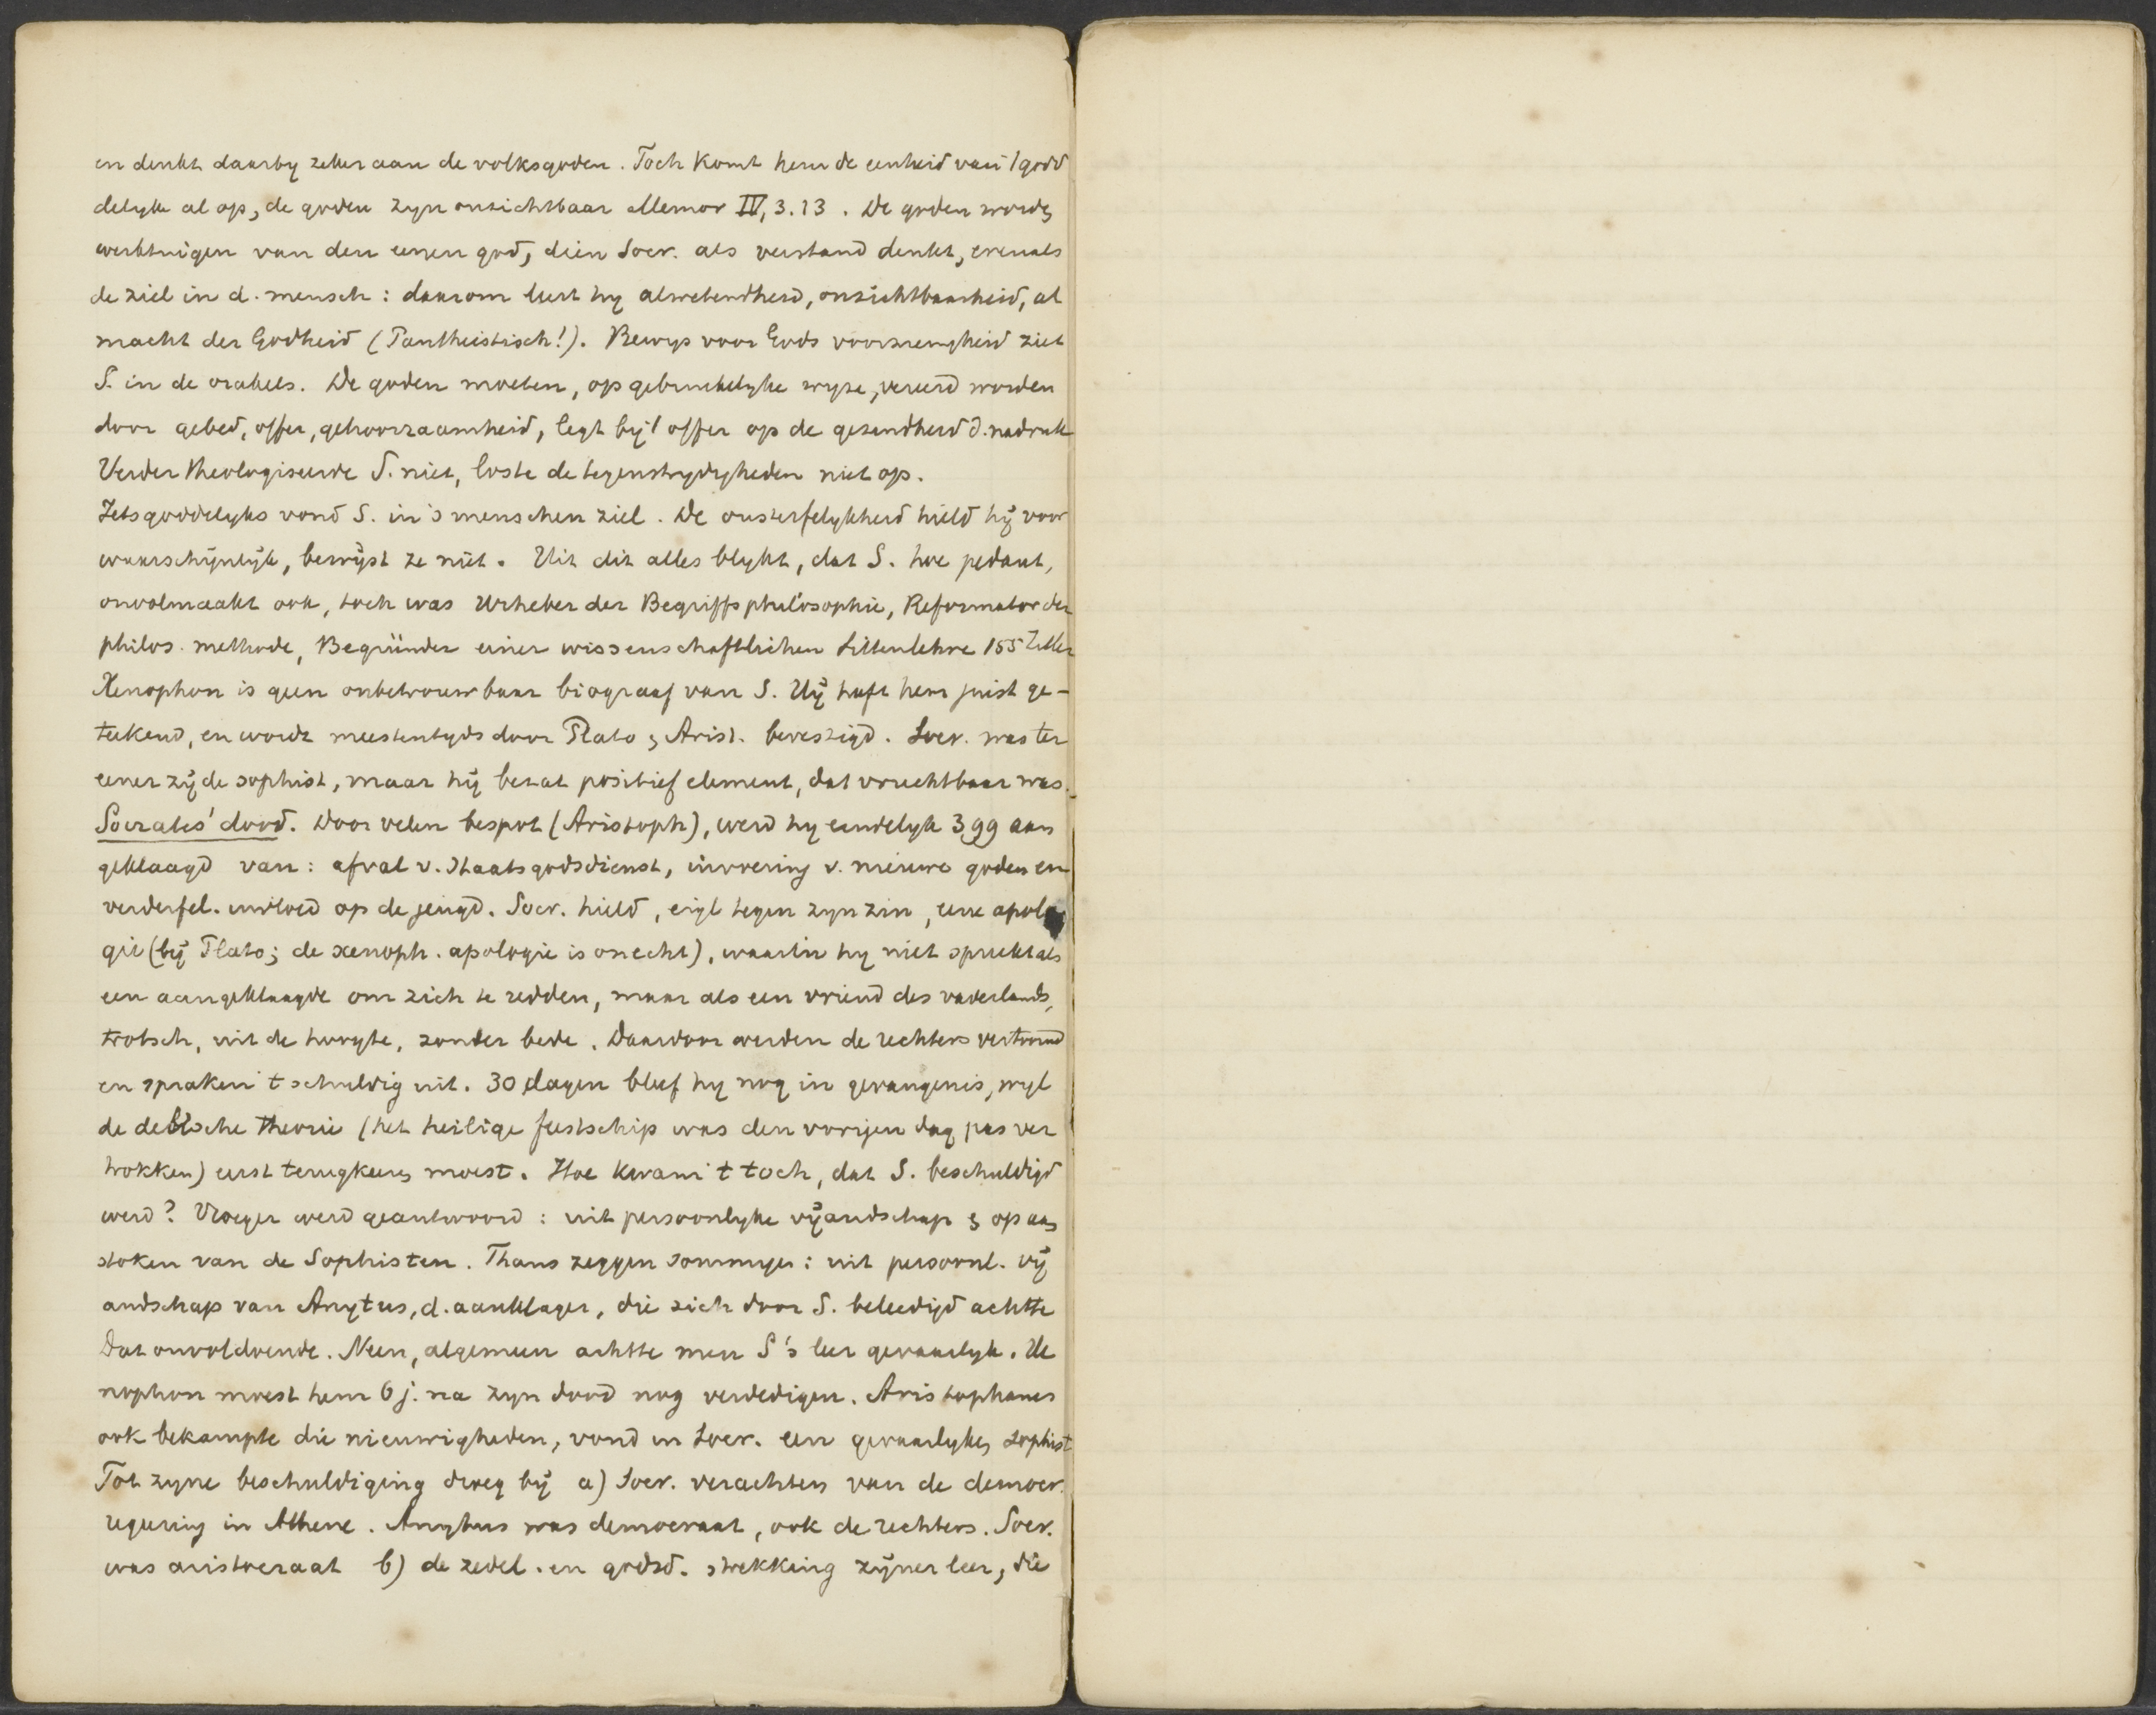 en denkt daarby zeker aan de volksgoden. Toch komt hem de eenheid van 't godd
delyke al op, de goden zyn onzichtbaar Memor IV, 3.13. De goden worden
werktuigen van den eenen god, dien Socr. als verstand denkt, evenals
de ziel in d. mensch: daarom leert hy alwetendheid, onzichtbaarheid, al
macht der Godheid (Pantheistisch!). Bewys voor Gods voorzienigheid ziet
S. in de orakels. De goden moeten, op gebruikelyke wyze, vereerd worden
door gebed, offer, gehoorzaamheid, legt by 't offer op de gezindheid d. nadruk
Verder theologiseerde S. niet, loste de tegenstrydigheden niet op.
Iets goddelyks vond S. in 's menschen ziel. De onsterfelykheid hield hij voor
waarschijnlijk, bewijst ze niet. Uit dit alles blykt, dat S. hoe pedant,
onvolmaakt ook, toch was Urheber der Begriffsphilosophie, Reformator der
philos. methode, Begründer einer wissenschaftlichen Sittenlehre 155 Zeller
Xenophon is geen onbetrouwbaar biograaf van S. Hij heeft hem juist ge-
teekend, en wordt meestentyds door Plato & Arist. bevestigd. Socr. was ter
eener zijde sophist, maar hij bezat positief element, dat vruchtbaar was.
Socrates' dood. Door velen bespot (Aristoph), werd hy eindelyk 399 aan
geklaagd van: afval v. Staatsgodsdienst, invoering v. nieuwe goden en
verderfel. invloed op de jeugd. Socr. hield, eigl tegen zyn zin, eene apolo
gie (bij Plato; de xenoph. apologie is onecht), waarin hy niet spreekt als
een aangeklaagde om zich te redden, maar als een vriend des vaderlands,
trotsch, uit de hoogte, zonder bede. Daardoor werden de rechters vertoornd
en spraken 't schuldig uit. 30 dagen bleef hy nog in gevangenis, wyl
de delische theorie (het heilige feestschip was den vorigen dag pas ver
trokken) eerst terugkeeren moest. Hoe kwam 't toch, dat S. beschuldigd
werd? Vroeger werd geantwoord: uit persoonlyke vijandschap & op aan
stoken van de Sophisten. Thans zeggen sommigen: uit persoonl. vij
andschap van Anytus, d. aanklager, die zich door S. beleedigd achtte
Dat onvoldoende. Neen, algemeen achtte men S's leer gevaarlyk. Xe
nophon moest hem 6 j. na zyn dood nog verdedigen. Aristophanes
ook bekampte die nieuwigheden, vond in Socr. een gevaarlyken sophist
Tot zyne beschuldiging droeg bij a) Socr. verachten van de democr.
regeering in Athene. Anytus was democraat, ook de rechters. Socr.
was aristocraat b) de zedel. en godsd. strekking zijner leer, die